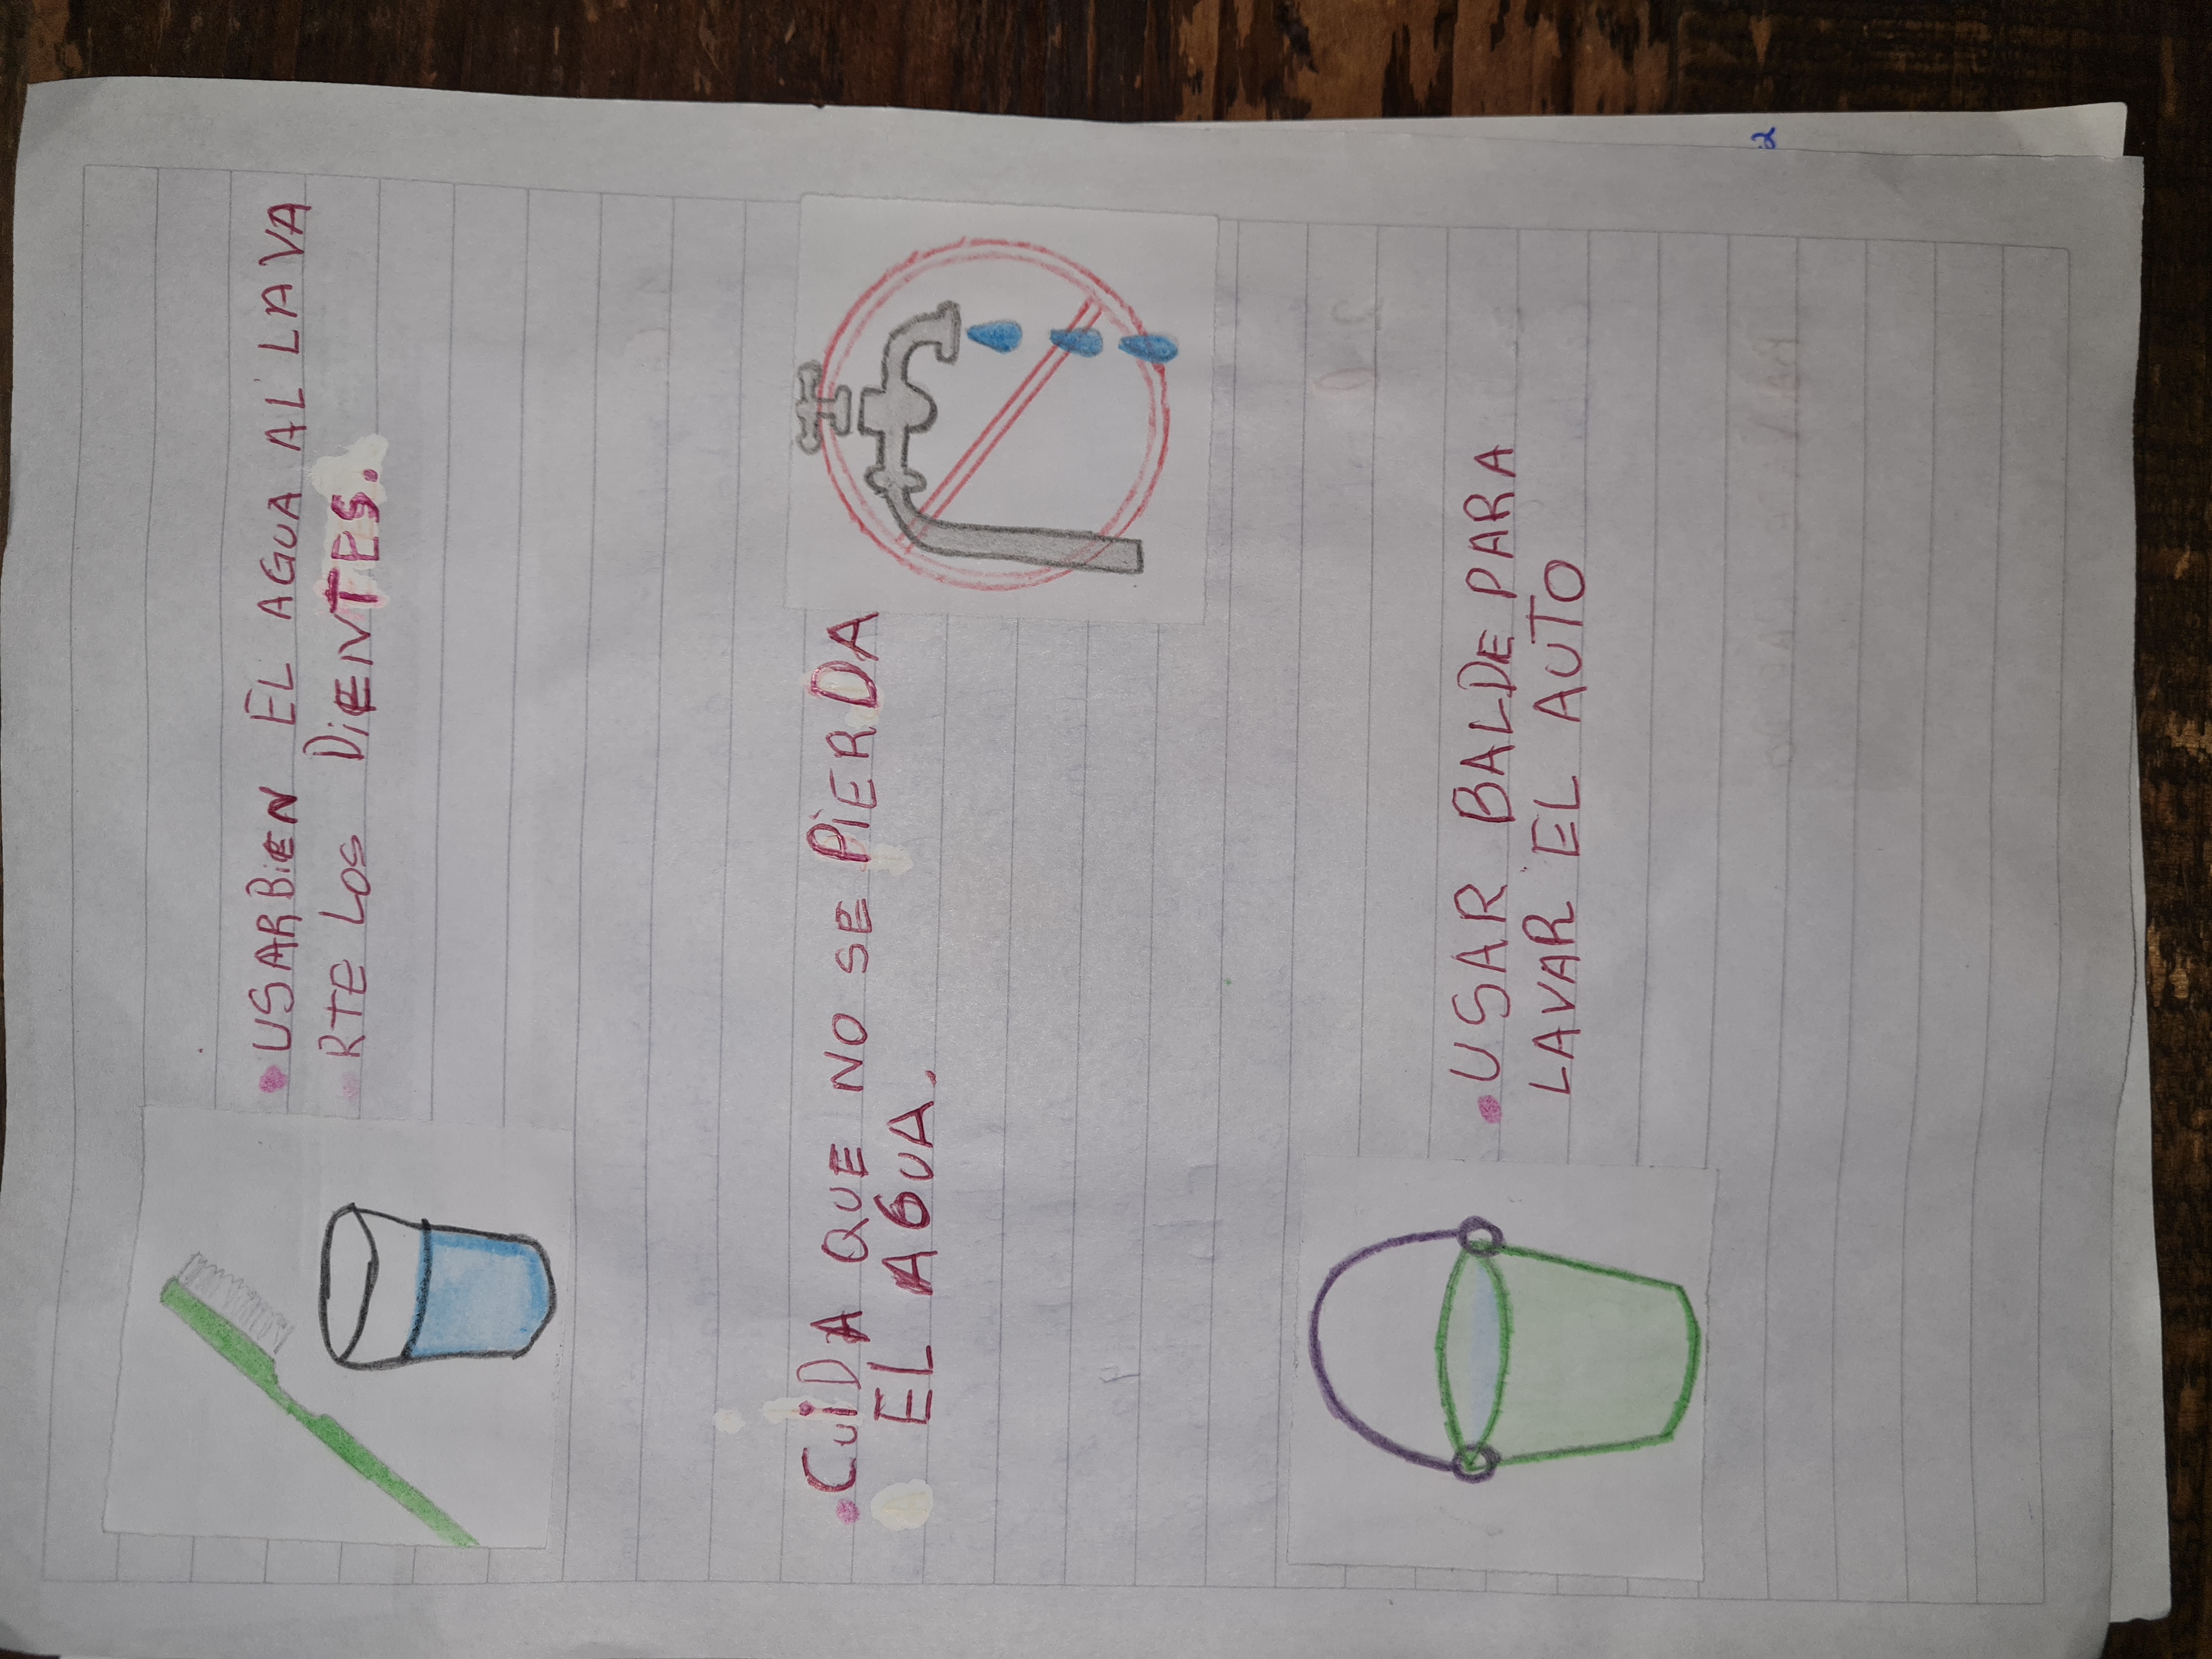 • USAR BiEN EL AGUA AL LAVA
RTE LOS DiENTES.
• CUiDA QUE NO SE PiERDA
EL AGUA.
• USAR BALDE PARA
LAVAR EL AUTO
2